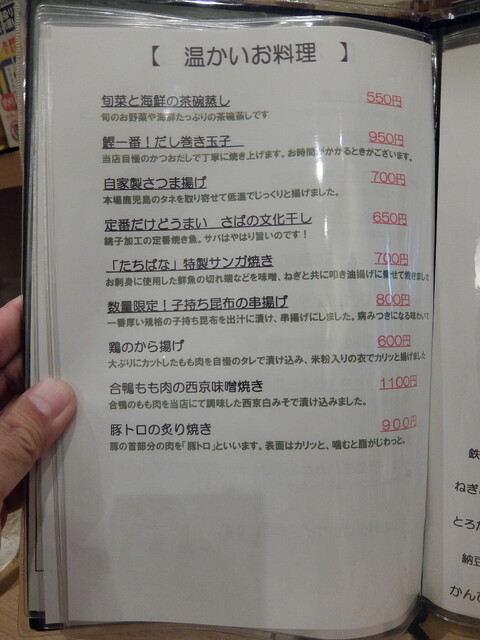 【 温かいお料理 】
旬菜と海鮮の茶碗蒸し 550円
旬のお野菜や海鮮たっぷりの茶碗蒸しです
鰹一番！だし巻き玉子 950円
当店自慢のかつおだしで丁寧に焼き上げます。お時間がかかるときがございます。
自家製さつま揚げ 700円
本場鹿児島のタネを取り寄せて低温でじっくりと揚げました。
定番だけどうまい さばの文化干し 650円
銚子加工の定番焼き魚。サバはやはり旨いのです！
「たちばな」特製サンガ焼き 700円
お刺身に使用した鮮魚の切れ端などを味噌、ねぎと共に叩き油揚げに乗せて焼きました
数量限定！子持ち昆布の串揚げ 800円
一番厚い規格の子持ち昆布を出汁に漬け、串揚げにしました。病みつきになる味わい
鶏のから揚げ 600円
大ぶりにカットしたもも肉を自慢のタレで漬け込み、米粉入りの衣でカリッと揚げました
合鴨もも肉の西京味噌焼き 1100円
合鴨のもも肉を当店にて調味した西京白みそで漬け込みました。
豚トロの炙り焼き 900円
豚の首部分の肉を「豚トロ」といいます。表面はカリッと、噛むと脂がじわっと。
鉄
ねぎ
とろた
納豆
かんぴ